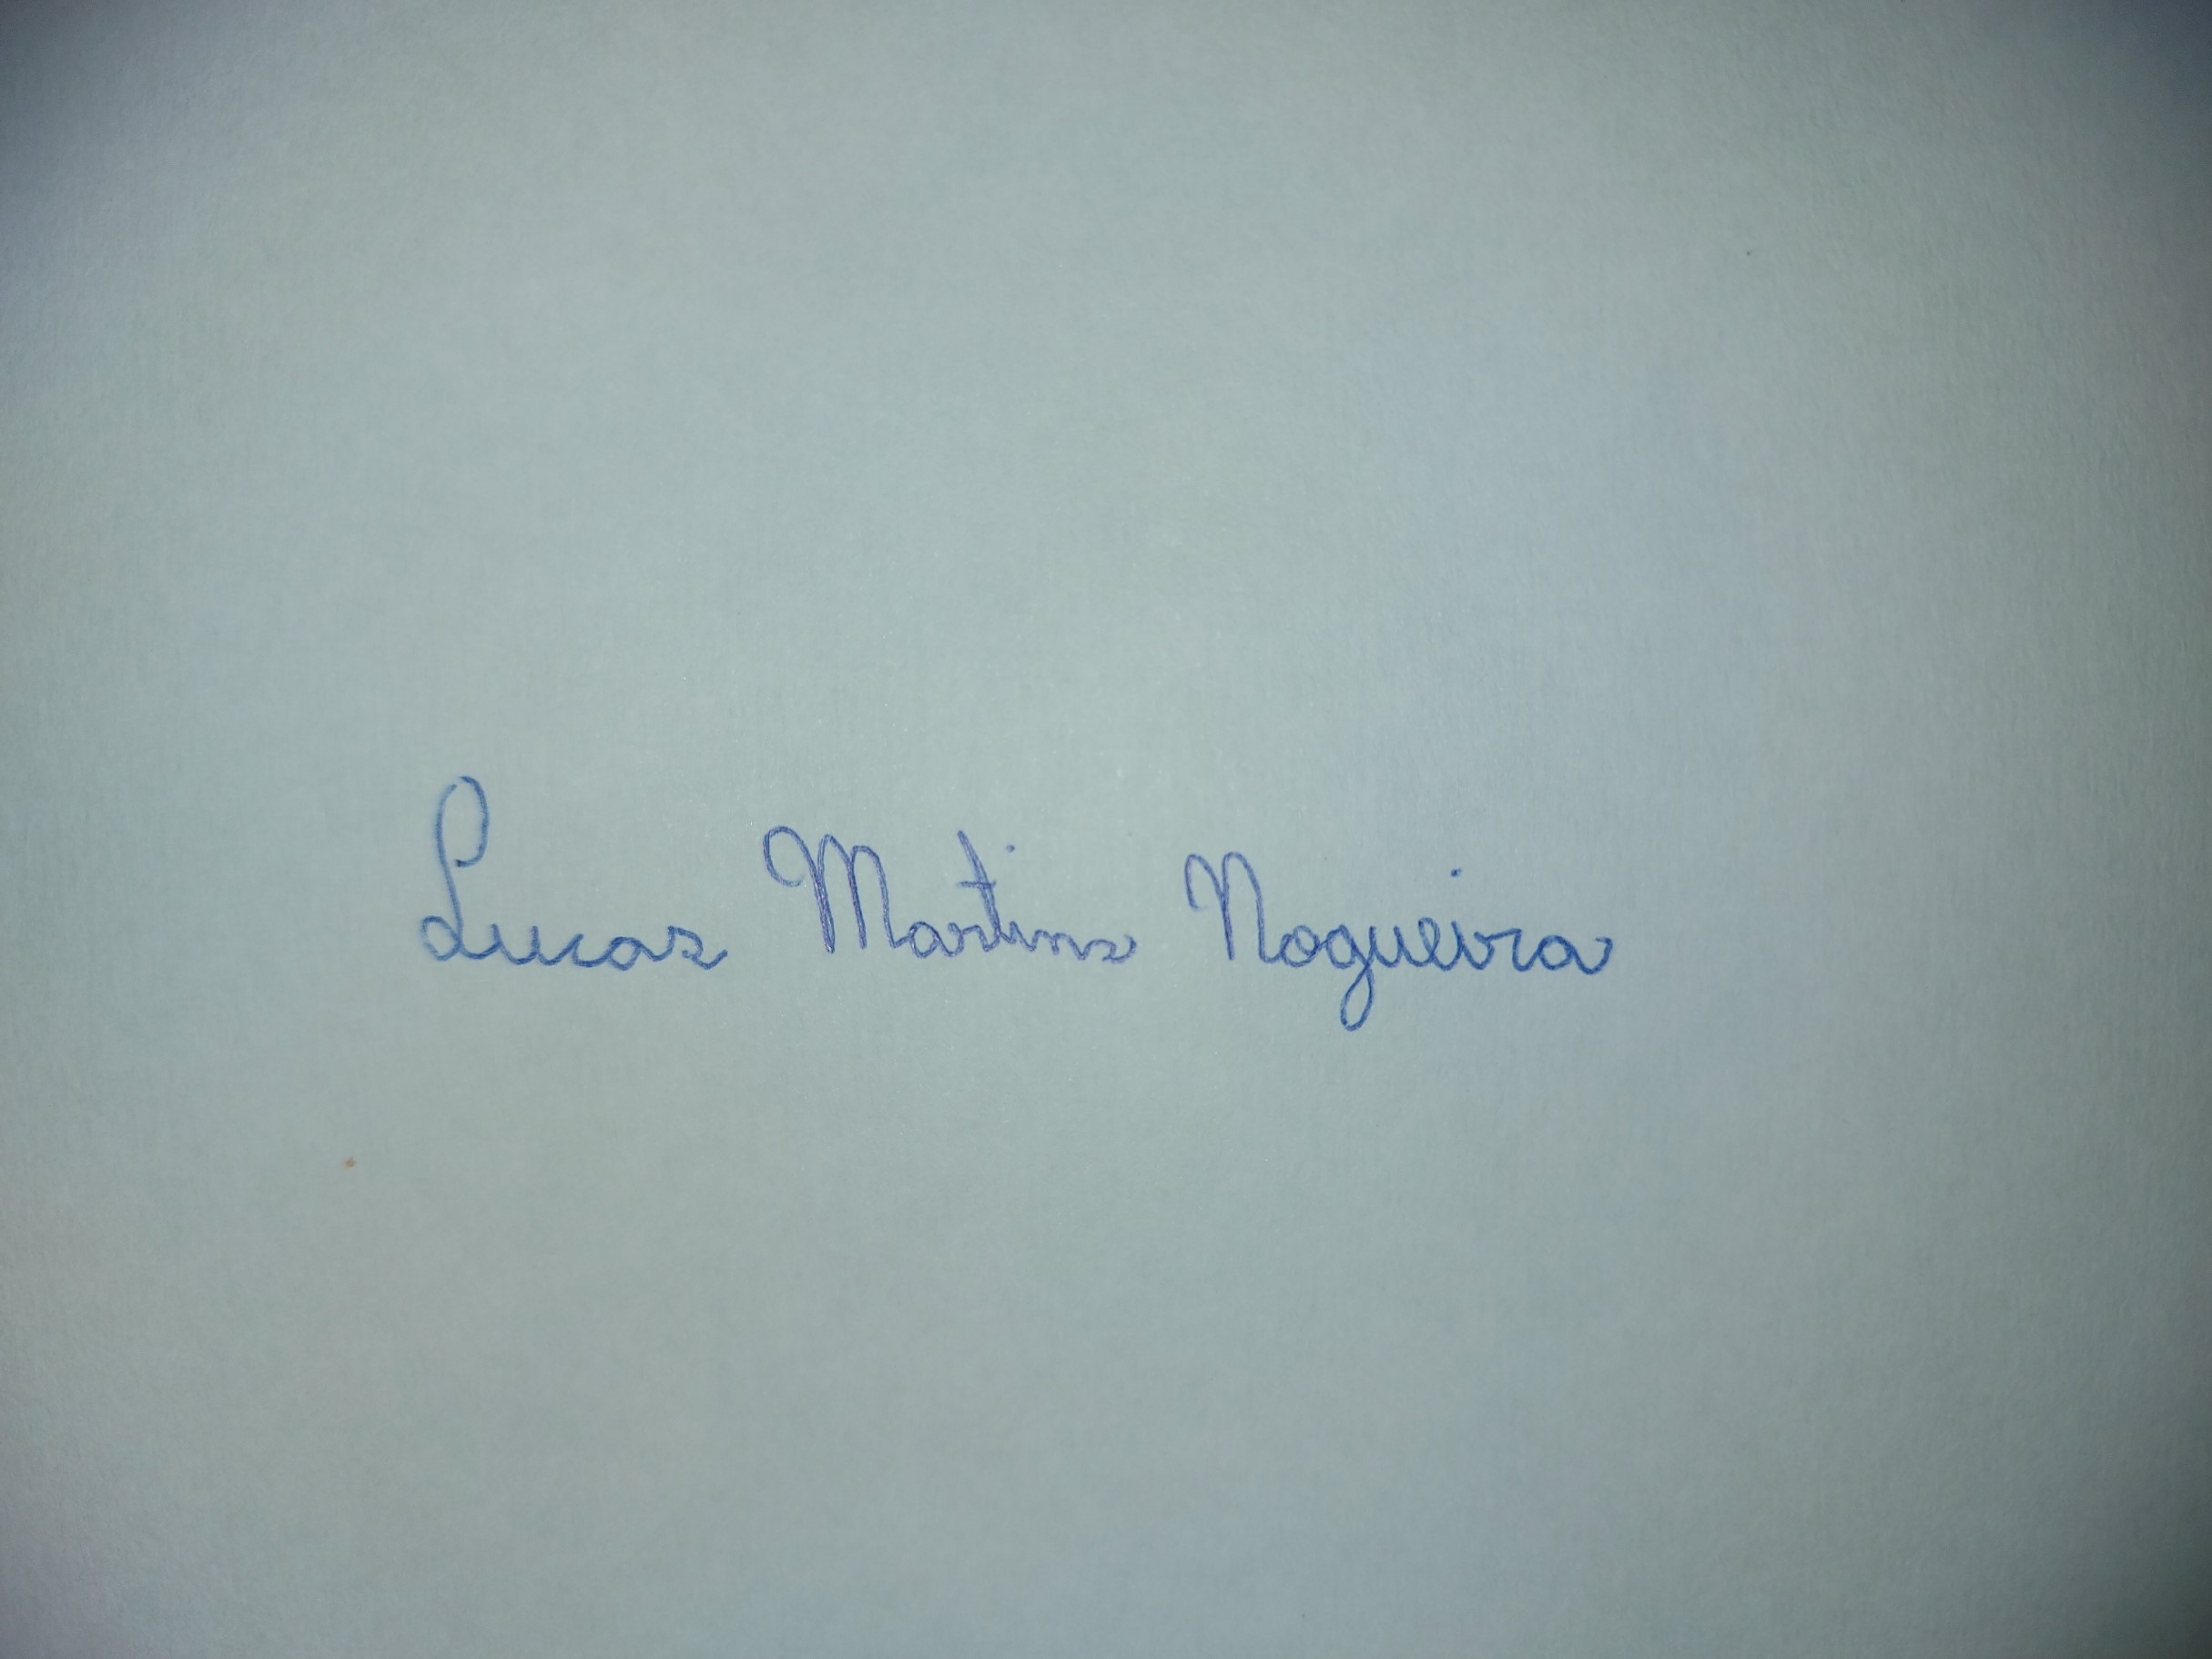 Lucas Martins Nogueira